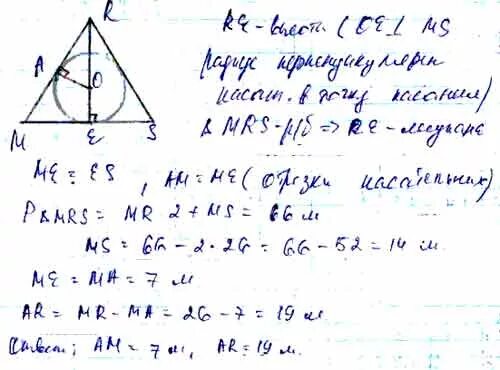 R
RE - высота (OE⊥ MS
A
O
радиус перпендикулярен
касат. в точку касания)
M
E
S
Δ MRS - р/б => RE - медиана
ME = ES , AM = ME (отрезки касательных)
PΔMRS = MR 2 + MS = 66 м
MS = 66 - 2·26 = 66 - 52 = 14 м.
ME = MA = 7 м
AR = MR - MA = 26 - 7 = 19 м.
Ответ: AM = 7 м, AR = 19 м.